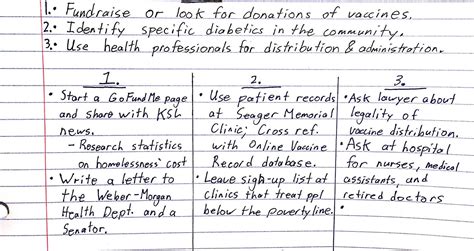 1.• Fundraise or look for donations of vaccines.
2.• Identify specific diabetics in the community.
3.• Use health professionals for distribution & administration.
1.
• Start a GoFundMe page
and share with KSL
news.
- Research statistics
on homelessness' cost
• Write a letter to
the Weber-Morgan
Health Dept. and a
Senator.
2.
• Use patient records
at Seager Memorial
Clinic; Cross ref.
with Online Vaccine
Record database.
• Leave sign-up list at
clinics that treat ppl
below the poverty line.
3.
• Ask lawyer about
legality of
vaccine distribution.
• Ask at hospital
for nurses, medical
assistants, and
retired doctors
•